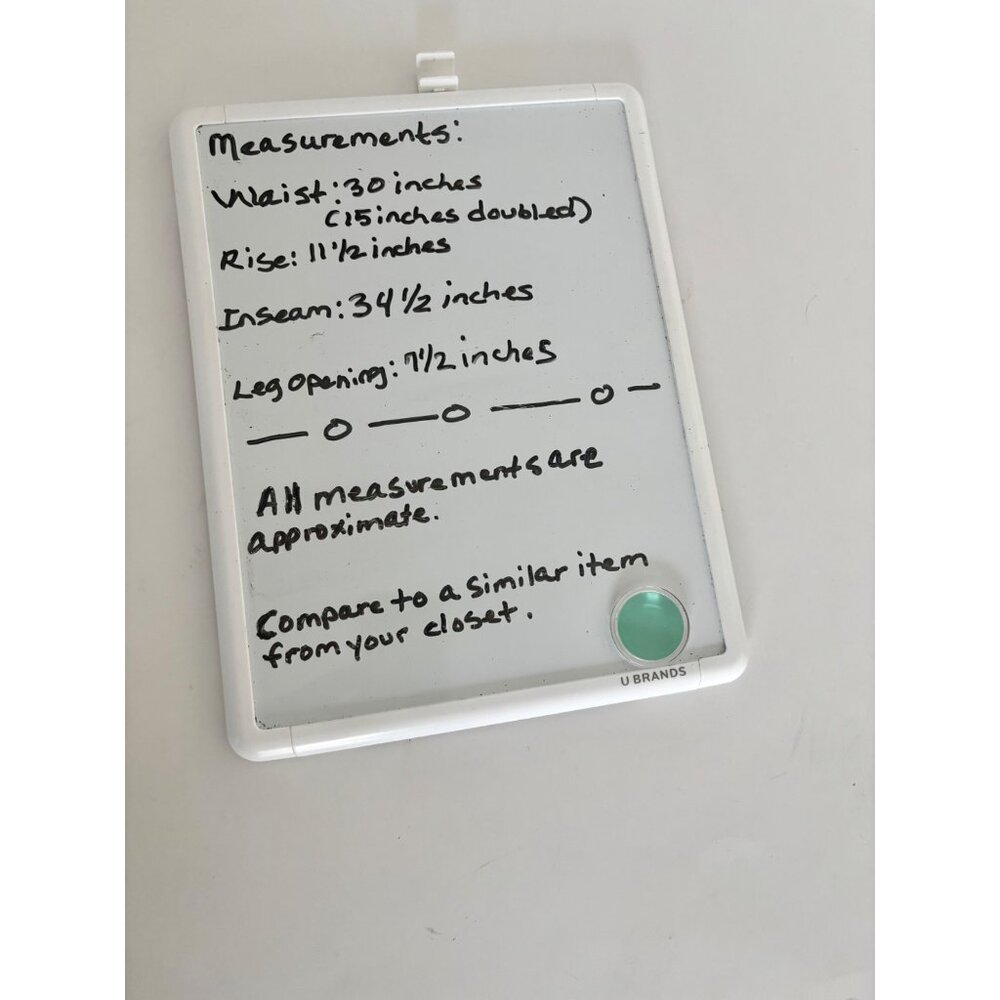 Measurements:
Waist: 30 inches
(15 inches doubled)
Rise: 11 1/2 inches
Inseam: 34 1/2 inches
Leg Opening: 7 1/2 inches
All measurements are
approximate.
Compare to a similar item
from your closet.
U BRANDS